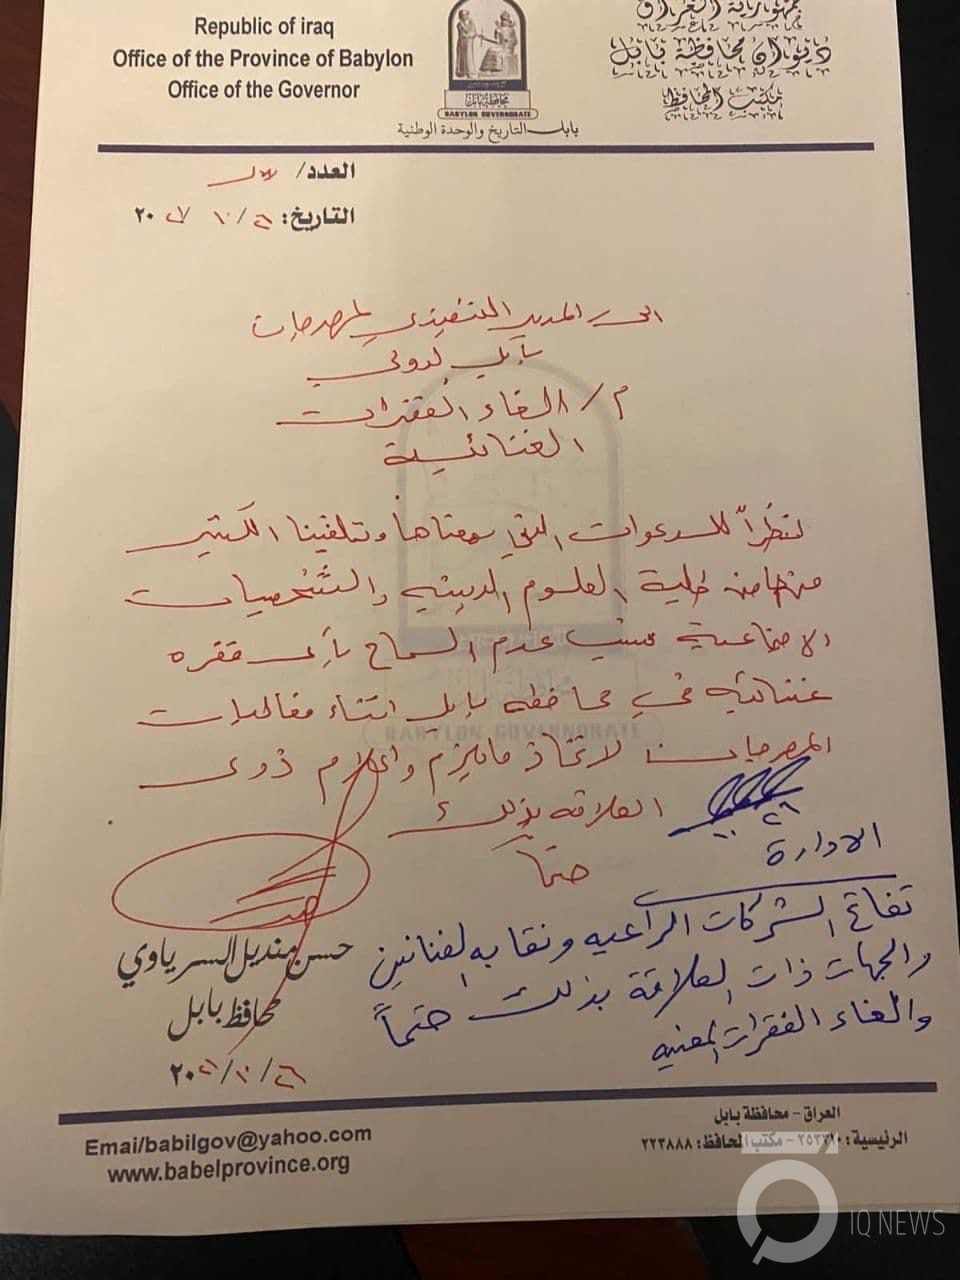 Republic of iraq
Office of the Province of Babylon
Office of the Governor
جمهورية العراق
ديوان محافظة بابل
مكتب المحافظ
محافظة بابل
BABYLON GOVERNORATE
بابل التاريخ والوحدة الوطنية
العدد/
التاريخ: ٢٦/١٠/٢٠٢١
الى المدير التنفيذي لمهرجان
بابل الدولي
م/ الغاء الفقرات
الغنائية
نظراً للدعوات التي سمعناها وتلقينا الكثير
منها من طلبة العلوم الدينية والشخصيات
الاجتماعية بسبب عدم السماح بأي فقره
غنائيه في محافظه بابل اثناء فعاليات
المهرجان لاتخاذ مايلزم واعلام ذوي
العلاقه بذلك
حتماً
BABYLON GOVERNORATE
الادارة
تفاتح الشركات الراعيه ونقابه الفنانين
والجهات ذات العلاقة بذلك حتماً
والغاء الفقرات المعنيه
حسن منديل السرياوي
محافظ بابل
٢٠٢١/١٠/٢٦
Emai/babilgov@yahoo.com
www.babelprovince.org
العراق - محافظة بابل
الرئيسية: - مكتب المحافظ: ٢٢٣٨٨٨
IQ NEWS